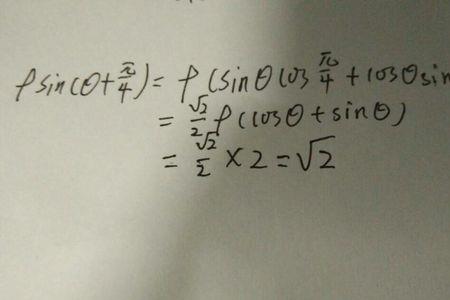 ρsin(θ+π/4)=ρ(sinθcosπ/4+cosθsin
=√2/2ρ(cosθ+sinθ)
=√2/2×2=√2